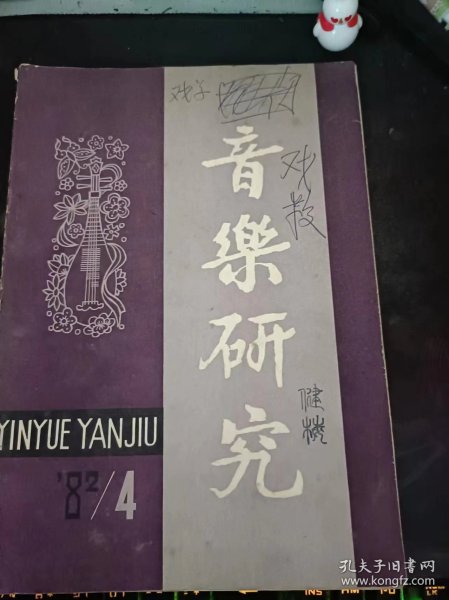 戏子
音樂研究
戏
YINYUE YANJIU
'82/4
孔夫子旧书网
www.kongfz.com